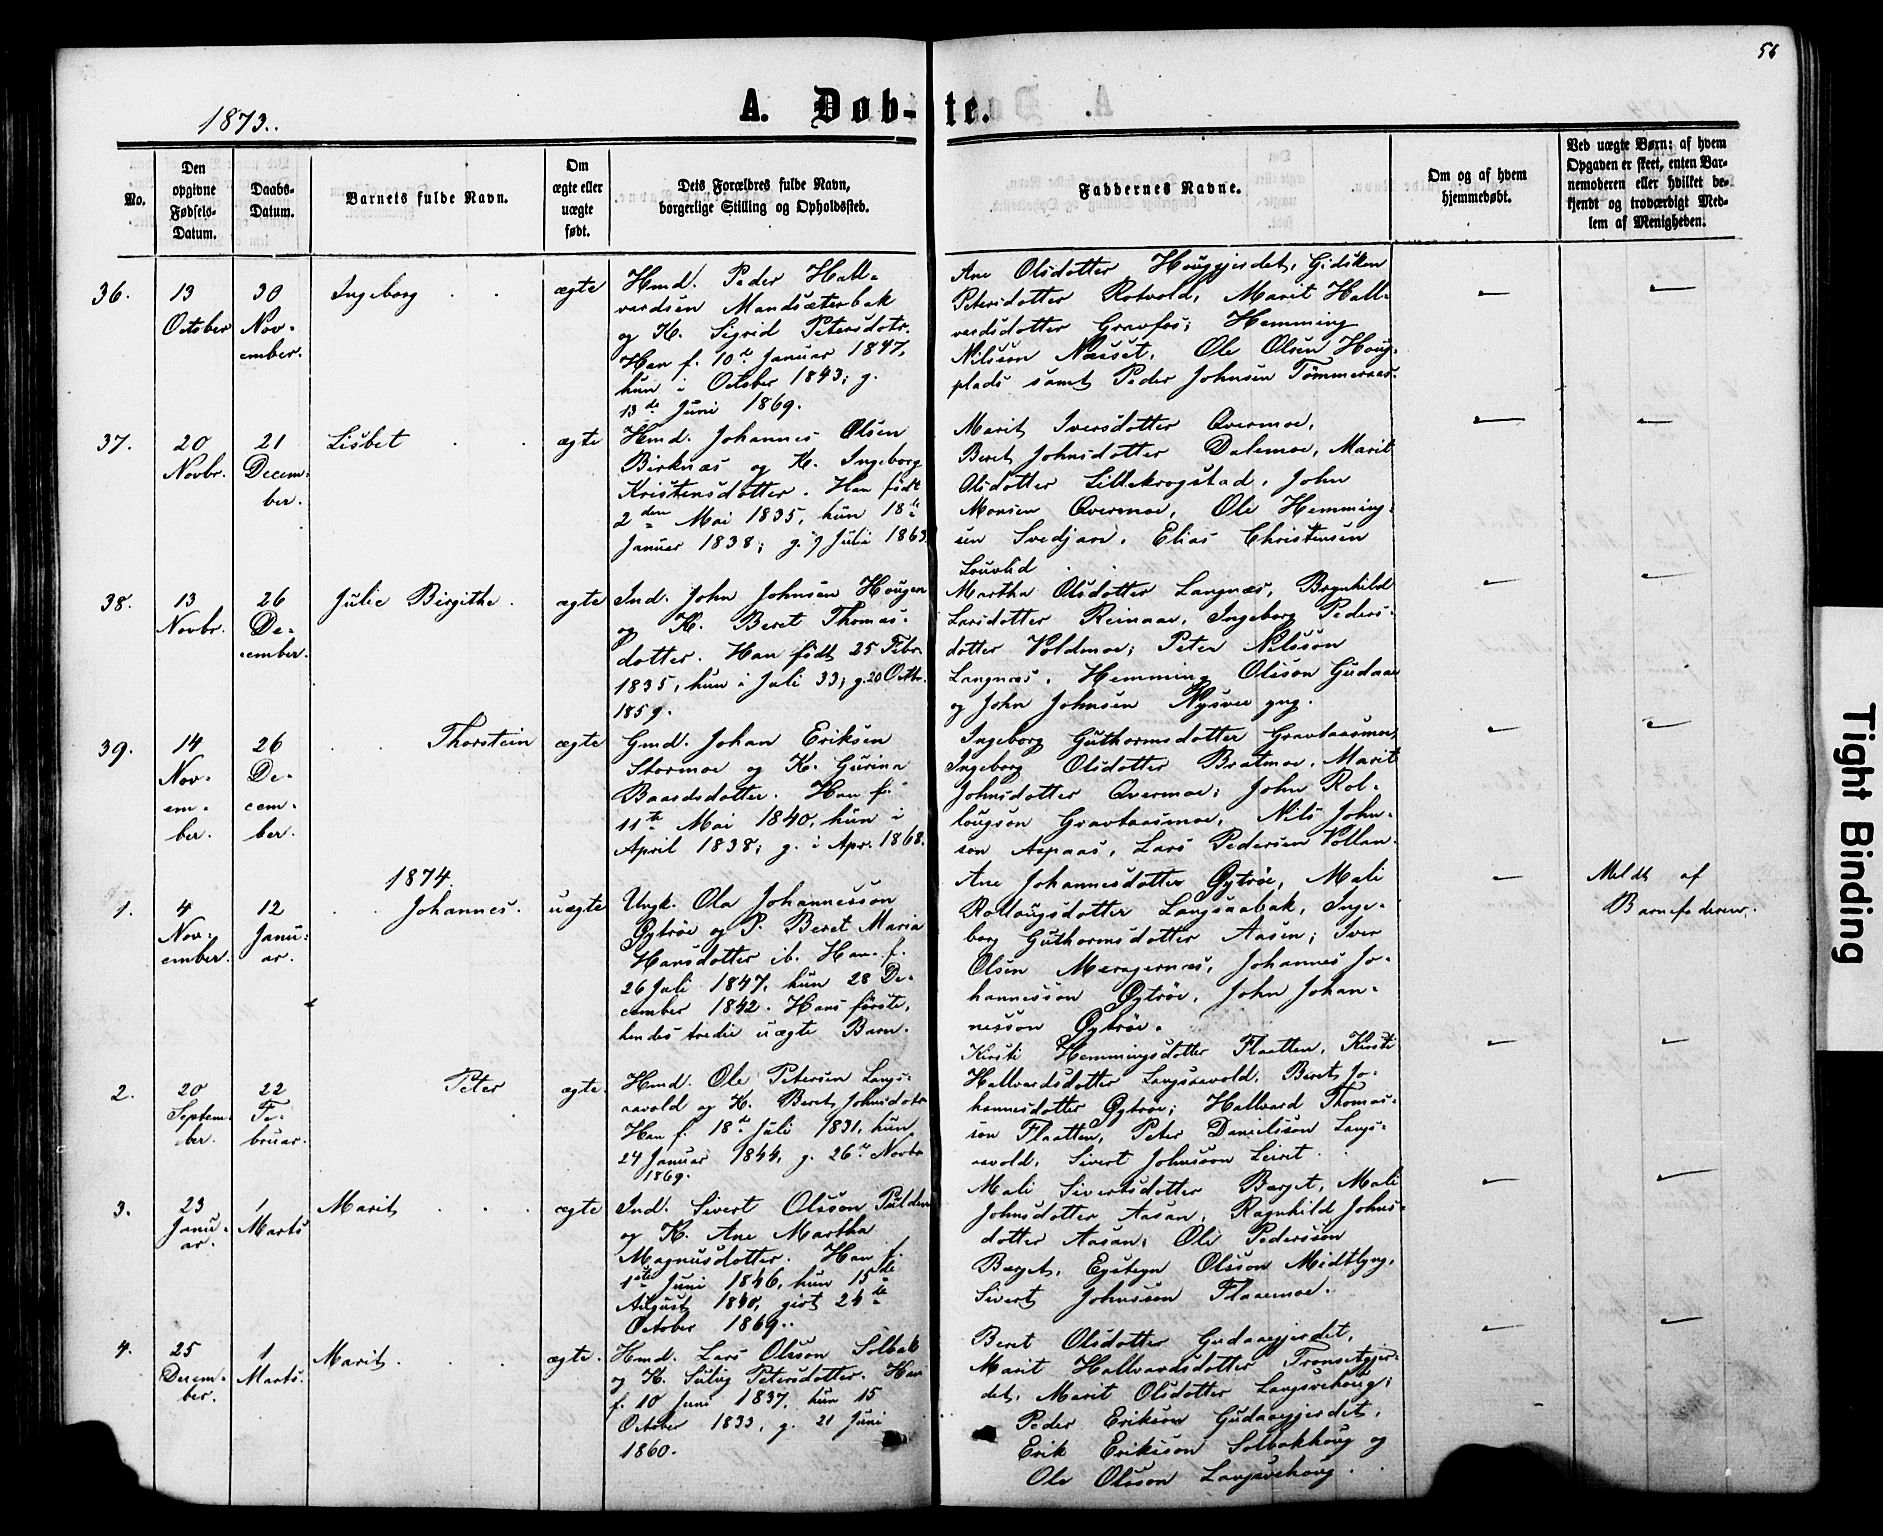 56
1873.
A. Døb-te.
No.
Den opgivne Fødsels-Datum.
Daabs-Datum.
Barnets fulde Navn.
Om ægte eller uægte født.
Dets Forældres fulde Navn, borgerlige Stilling og Opholdssted.
Faddernes Navne.
Om og af hvem hjemmedøbt.
Ved uægte Børn: af hvem Opgaven er skeet, enten Barnemoderen eller hvilket bekjendt og troværdigt Medlem af Menigheden.
36.
13 October
30 Nov-
ember.
Ingeborg
ægte
Hmd. Peder Hall-
vardsen Mandsæterbak
og K. Sigrid Petersdotr.
Han f. 10de Januar 1847,
hun i October 1843; g.
13de Juni 1869.
Ane Olsdotter Houggjerdet, Gidsken
Petersdotter Rotvold, Marit Hall-
vardsdotter Gravfos; Hemming
Nilsson Næsset, Ole Olsen Houg-
plads samt Peder Johnsen Tømmeraas.
37.
20 Novbr.
21 Decem-
ber.
Lisbet
ægte
Hmd. Johannes Olsen
Birknæs og K. Ingeborg
Kristensdotter. Han født
2den Mai 1835, hun 18de
Januar 1838; g. 9 Juli 1863.
Marit Iversdotter Overmoe,
Beret Johnsdotter Dalemoe, Marit
Olsdotter Littlekrogstad, John
Monsen Overmoe, Ole Hemming-
sen Svedjan, Elias Christensen
38.
13 Novbr.
26 De-
cember.
Julie Birgithe.
ægte
Ind. John Johnsen Hougen
og K. Beret Thomas-
dotter. Han født 25 Febr.
1835, hun i Juli 33; g. 20 Octbr.
1859.
Martha Olsdotter Langnæs, Brynhild
Larsdotter Reinaar, Ingeborg Peders-
dotter Voldmoe; Peter Nilsson
Langnæs, Hemming Olsson Gudaa
og John Johnsen Nysvee yng.
39.
14 Nov-
em-
ber.
26 De-
cem-
ber.
Thorstein
ægte
Gmd. Johan Eriksen
Stormoe og K. Gurina
Baardsdotter. Han f.
11te Mai 1840, hun i
April 1838; g. i Apr. 1868.
Ingeborg Guthormsdotter Gravaasmoe,
Ingeborg Olsdotter Bratmoe, Marit
Johnsdotter Overmoe; John Rol-
lougson Gravaasmoe, Nils John-
son Aspaas, Lars Pedersen Vollan.
1874.
1.
4 Nov-
ember.
12 Janu-
ar.
Johannes.
uægte
Ungk. Ola Johannesson
Gytrøe og P. Beret Maria
Hansdotter ib. Han f.
26 Juli 1847, hun 28 De-
cember 1842. Hans første,
hendes tredie uægte Barn.
Ane Johannesdotter Gytrøe, Mali
Rollougsdotter Langsaabak, Inge-
borg Guthormsdotter Aasen; Iver
Olsen Meragernæs, Johannes Jo-
hannesson Gytrøe, John Johan-
nesson Gytrøe.
Meldt af
Barnefaderen.
2.
20 Septem-
ber.
22 Fe-
bruar.
Peter
ægte.
Hmd. Ole Petersen Langs-
aavold og K. Beret Johnsdotr.
Han f. 18de Juli 1831, hun
24 Januar 1844, g. 26de Novbr.
1869.
Kirsti Hemmingsdotter Flaatten, Kirsti
Hallvardsdotter Langsaavold, Beret Jo-
hannesdotter Gytrøe; Hallvard Thomas-
son Flaatten, Peter Danielsson Langs-
aavold, Sivert Johnsson Leiret.
3.
23 Janu-
ar.
1 Marts
Marit
ægte
Ind. Sivert Olsson Pulden
og K. Ane Martha
Magnusdotter. Han f.
1ste Juni 1846, hun 15de
August 1840, givt 24de
October 1869.
Mali Sivertsdotter Barget, Mali
Johnsdotter Aasan, Ragnhild Johns-
dotter Aasan; Ole Pedersson
Barget, Eysteyn Olsson Midtlyng,
Sivert Johnsson Flaaemoe.
4.
25 Decem-
ber.
1 Marts.
Marit.
ægte.
Hmd. Lars Olsson Solbak
og K. Sulvig Petersdotter. Han
f. 10 Juni 1837, hun 15
October 1833, g. 21 Juni
1860.
Beret Olsdotter Gudaagjerdet,
Marit Hallvardsdotter Tronsetgjer-
det, Marit Olsdotter Langsvehoug;
Peder Erikson Gudaagjerdet,
Erik Eriksson Solbakhoug og
Ole Olsson Langsvehoug.
Tight Binding